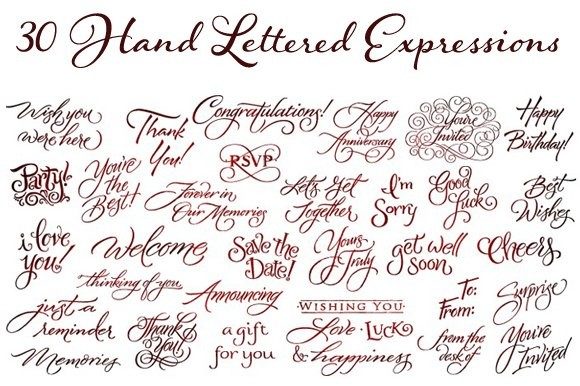 30 Hand Lettered Expressions
Wish you
were here
Thank
You!
Congratulations!
Happy
Anniversary
You're
Invited
Happy
Birthday!
Party!
You're
the
Best!
RSVP
Forever in
Our Memories
Let's Get
Together
I'm
Sorry
Good
Luck
Best
Wishes
i love
you!
Welcome
Save the
Date!
Yours
Truly
get well
soon
Cheers
thinking of you
Announcing
WISHING YOU
To:
From:
Surprise
just a
reminder
Thank
You!
a gift
for you
Love · Luck
& happiness
from the
desk of
You're
Invited
Memories